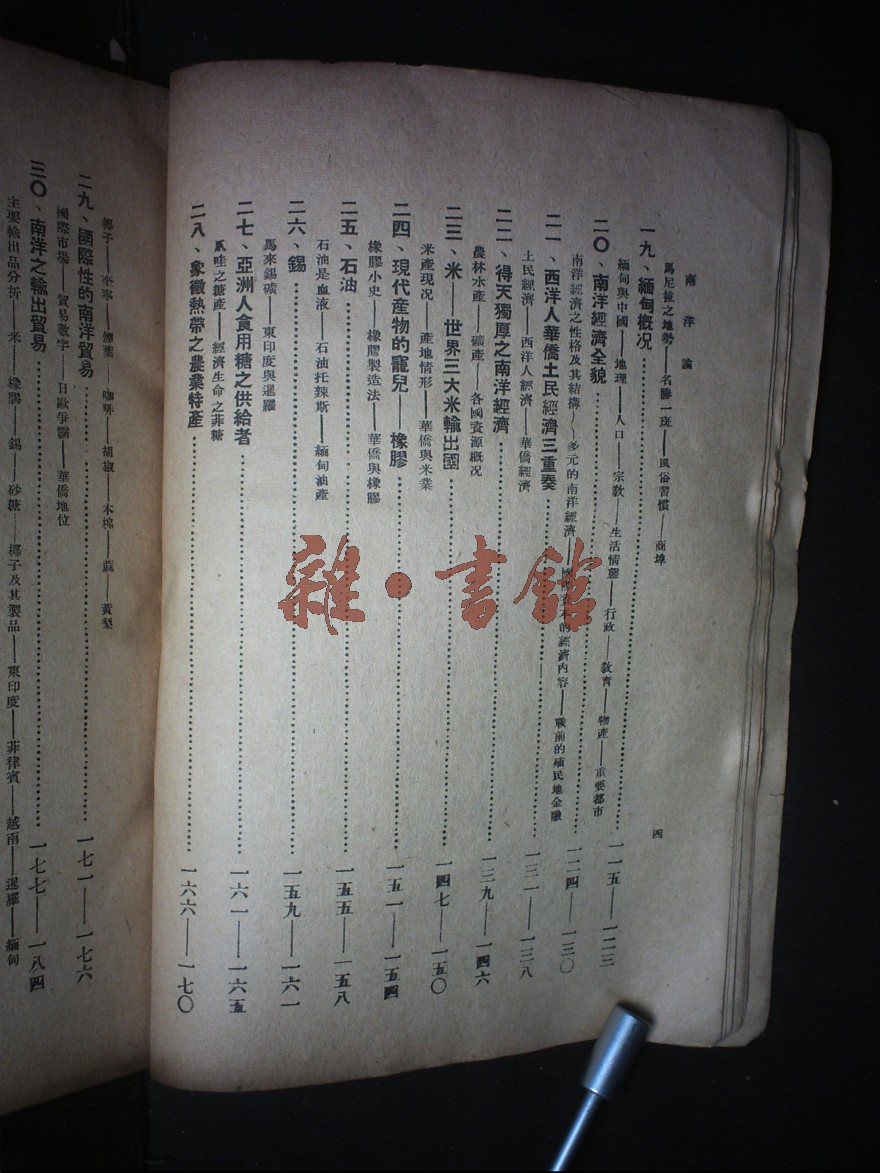 南洋論
四
馬尼拉之地勢——名勝一斑——風俗習慣——商埠
一九、緬甸概況……一一五——一二三
緬甸與中國——地理——人口——宗教——生活情態——行政——教育——物產——重要都市
二〇、南洋經濟全貌……一二四——一三〇
南洋經濟之性格及其結構——多元的南洋經濟——資本的經濟內容——戰前的殖民地金融
二一、西洋人華僑土民經濟三重奏……一三一——一三八
土民經濟——西洋人經濟——華僑經濟
二二、得天獨厚之南洋經濟……一三九——一四六
農林水產——礦產——各國資源概況
二三、米——世界三大米輸出國……一四七——一五〇
米產現況——產地情形——華僑與米業
二四、現代產物的寵兒——橡膠……一五一——一五四
橡膠小史——橡膠製造法——華僑與橡膠
二五、石油……一五五——一五八
石油是血液——石油托辣斯——緬甸油產
二六、錫……一五九——一六一
馬來錫礦——東印度與暹羅
二七、亞洲人食用糖之供給者……一六一——一六五
爪哇之糖產——經濟生命之菲糖
二八、象徵熱帶之農業特產……一六六——一七〇
椰子——咖啡——胡椒——木棉——蔴——黃梨
二九、國際性的南洋貿易……一七一——一七六
國際市場——貿易數字——日歐爭霸——華僑地位
三〇、南洋之輸出貿易……一七七——一八四
主要輸出品分析——米——橡膠——錫——砂糖——椰子及其製品——東印度——菲律賓——越南——暹羅——緬甸
雜·書館